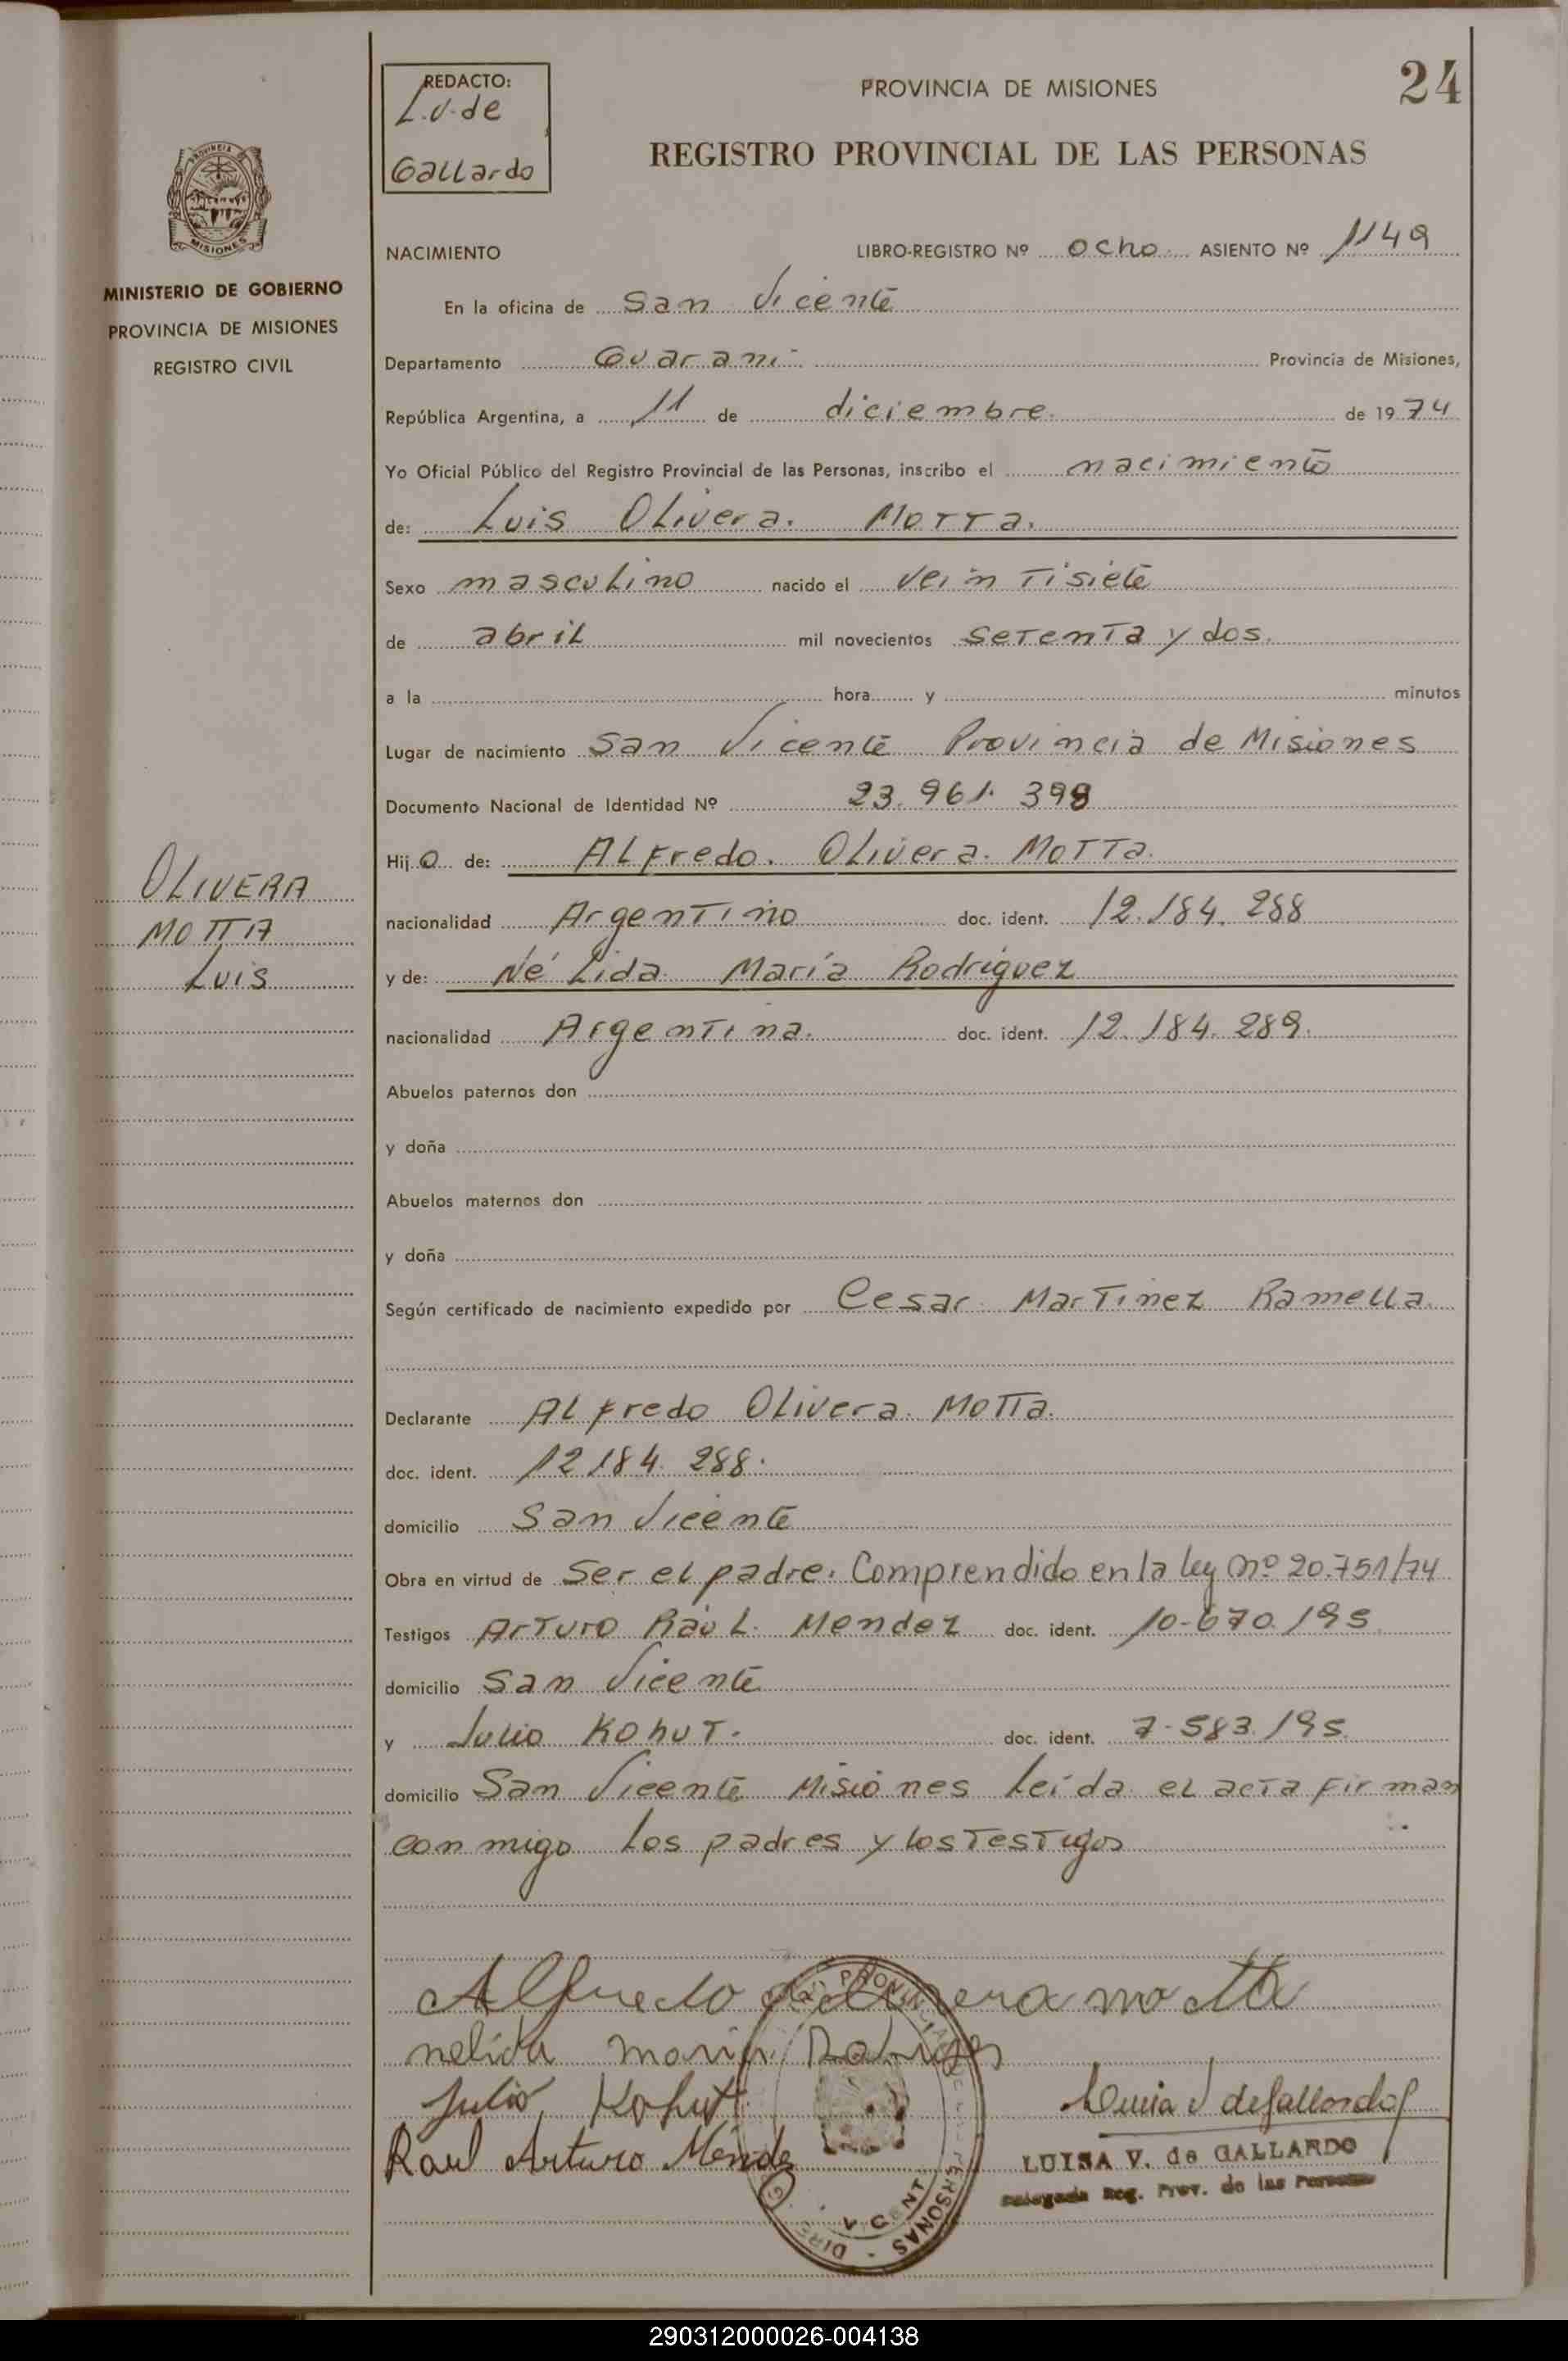 REDACTO:
L.V. de
Gallardo
PROVINCIA DE MISIONES
24
REGISTRO PROVINCIAL DE LAS PERSONAS
PROVINCIA DE
MISIONES
MINISTERIO DE GOBIERNO
PROVINCIA DE MISIONES
REGISTRO CIVIL
NACIMIENTO LIBRO-REGISTRO Nº ocho. ASIENTO Nº 1149
En la oficina de San Vicente
Departamento Guarani Provincia de Misiones,
República Argentina, a 11 de diciembre. de 1974
Yo Oficial Público del Registro Provincial de las Personas, inscribo el nacimiento
de: Luis Olivera. Motta.
Sexo masculino nacido el veintisiete
de abril mil novecientos setenta y dos.
a la hora y minutos
Lugar de nacimiento San Vicente Provincia de Misiones
Documento Nacional de Identidad Nº 23.961.398
Hijo de: Alfredo. Olivera. Motta.
nacionalidad Argentino doc. ident. 12.184.288
y de: Nélida María Rodríguez
nacionalidad Argentina. doc. ident. 12.184.289.
OLIVERA
MOTTA
Luis
Abuelos paternos don
y doña
Abuelos maternos don
y doña
Según certificado de nacimiento expedido por Cesar Martinez Ramella.
Declarante Alfredo Olivera. Motta.
doc. ident. 12.184.288.
domicilio San Vicente
Obra en virtud de Ser el padre. Comprendido en la ley nº 20.751/74
Testigos Arturo Raúl. Mendez doc. ident. 10-670.195
domicilio San Vicente
y Julio Kohut. doc. ident. 7-583.195.
domicilio San Vicente Misiones leída el acta firman
conmigo los padres y los testigos
Alfredo Olivera motta
nelida maria
Julio Kohut
Raul Arturo Méndez
Luisa V de Gallardo
LUISA V. de GALLARDO
Delegada Reg. Prov. de las Personas
290312000026-004138